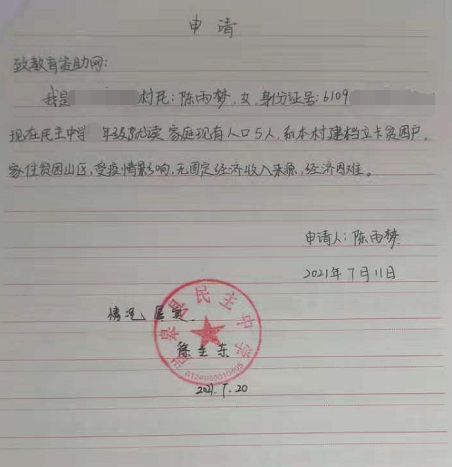 申请
致教育资助网：
我是 村民：陈雨梦，女，身份证号：6109
现在民主中学 年级 就读 家庭现有人口5人，系本村建档立卡贫困户，
家住贫困山区，受疫情影响，无固定经济收入来源，经济困难。
申请人：陈雨梦
2021年7月11日
情况属实
县民主中学
2021.7.20